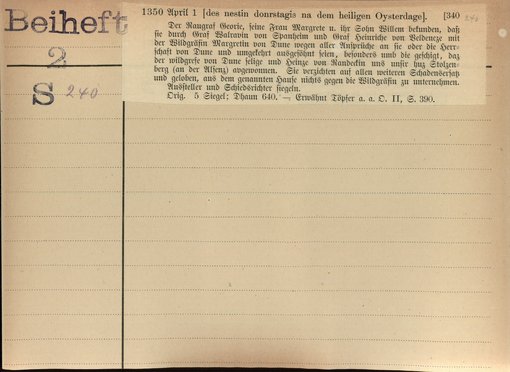 Beiheft
2
S 240
1350 April 1 [des nestin donrstagis na dem heiligen Oysterdage]. [340 240
Der Raugraf Georie, seine Frau Margrete u. ihr Sohn Willem bekunden, daß
sie durch Graf Walravin von Spanheim und Graf Heinriche von Veldencze mit
der Wildgräfin Margretin von Dune wegen aller Ansprüche an sie oder die Herr-
schaft von Dune und umgekehrt ausgesöhnt seien, besonders umb die geschigt, daz
der wildgrefe von Dune selige und Heinze von Randeckin uns unsir huz Stolzen-
berg (an der Alsenz) abgewonnen. Sie verzichten auf allen weiteren Schadensersatz
und geloben, aus dem genannten Hause nichts gegen die Wildgräfin zu unternehmen.
Aussteller und Schiedsrichter siegeln.
Orig. 5 Siegel; Dhaun 640. — Erwähnt Töpfer a. a. O. II, S. 390.